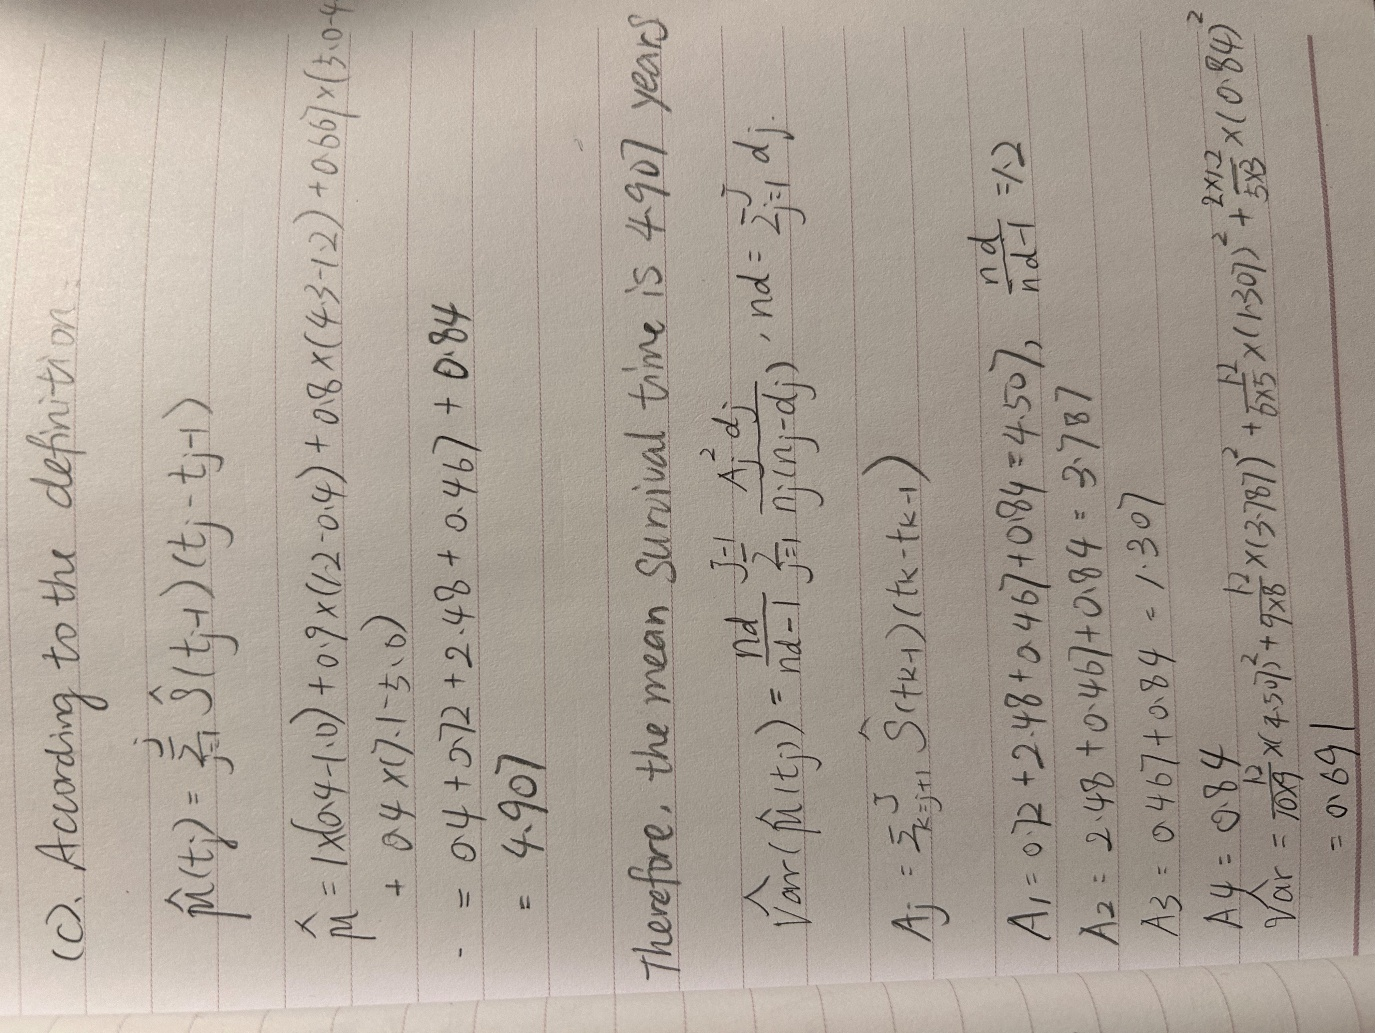 (c). According to the definition:
μ̂(tj) = Σ_{j=1}^{J} Ŝ(tj-1)(tj - tj-1)
μ̂ = 1×(0.4-1.0) + 0.9×(1.2-0.4) + 0.8×(4.3-1.2) + 0.667×(5.0-4
+ 0.4×(7.1-5.0)
= 0.4 + 0.72 + 2.48 + 0.467 + 0.84
= 4.907
Therefore, the mean survival time is 4.907 years
V̂ar(μ̂(tj)) = nd/(nd-1) Σ_{j=1}^{J-1} Aj² dj / nj(nj-dj), nd = Σ_{j=1}^{J} dj.
Aj = Σ_{k=j+1}^{J} Ŝ(tk-1)(tk - tk-1)
A1 = 0.72 + 2.48 + 0.467 + 0.84 = 4.507, nd/(nd-1) = 1.2
A2 = 2.48 + 0.467 + 0.84 = 3.787
A3 = 0.467 + 0.84 = 1.307
A4 = 0.84
V̂ar = 1.2/(10×9) × (4.507)² + 1.2/(9×8) × (3.787)² + 1.2/(6×5) × (1.307)² + 2×1.2/(5×3) × (0.84)²
= 0.691